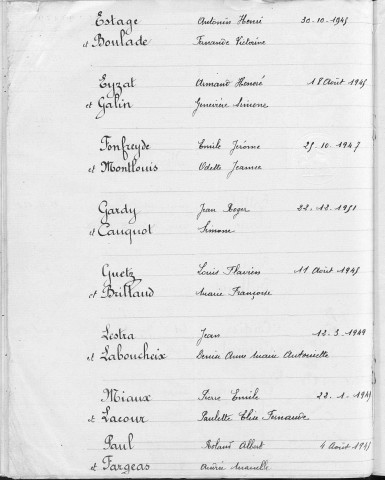 Estage Antonin Henri 30-10-1945
et Boulade Fernande Victorine
Eyzat Armand Honoré 18 Août 1945
et Galin Geneviève Simone
Fonfreyde Emile Jérôme 25-10-1947
et Montlouis Odette Jeanne
Gardy Jean Roger 22-12-1951
et Cauquot Simone
Guetz Louis Flavien 11 Août 1945
et Brilland Marie Françoise
Lestra Jean 12-3-1949
et Laboucheix Denise Anne Marie Antoinette
Miaux Pierre Emile 22-1-1945
et Lacour Paulette Elise Fernande
Paul Roland Albert 4 Août 1945
et Fargeas Andrée